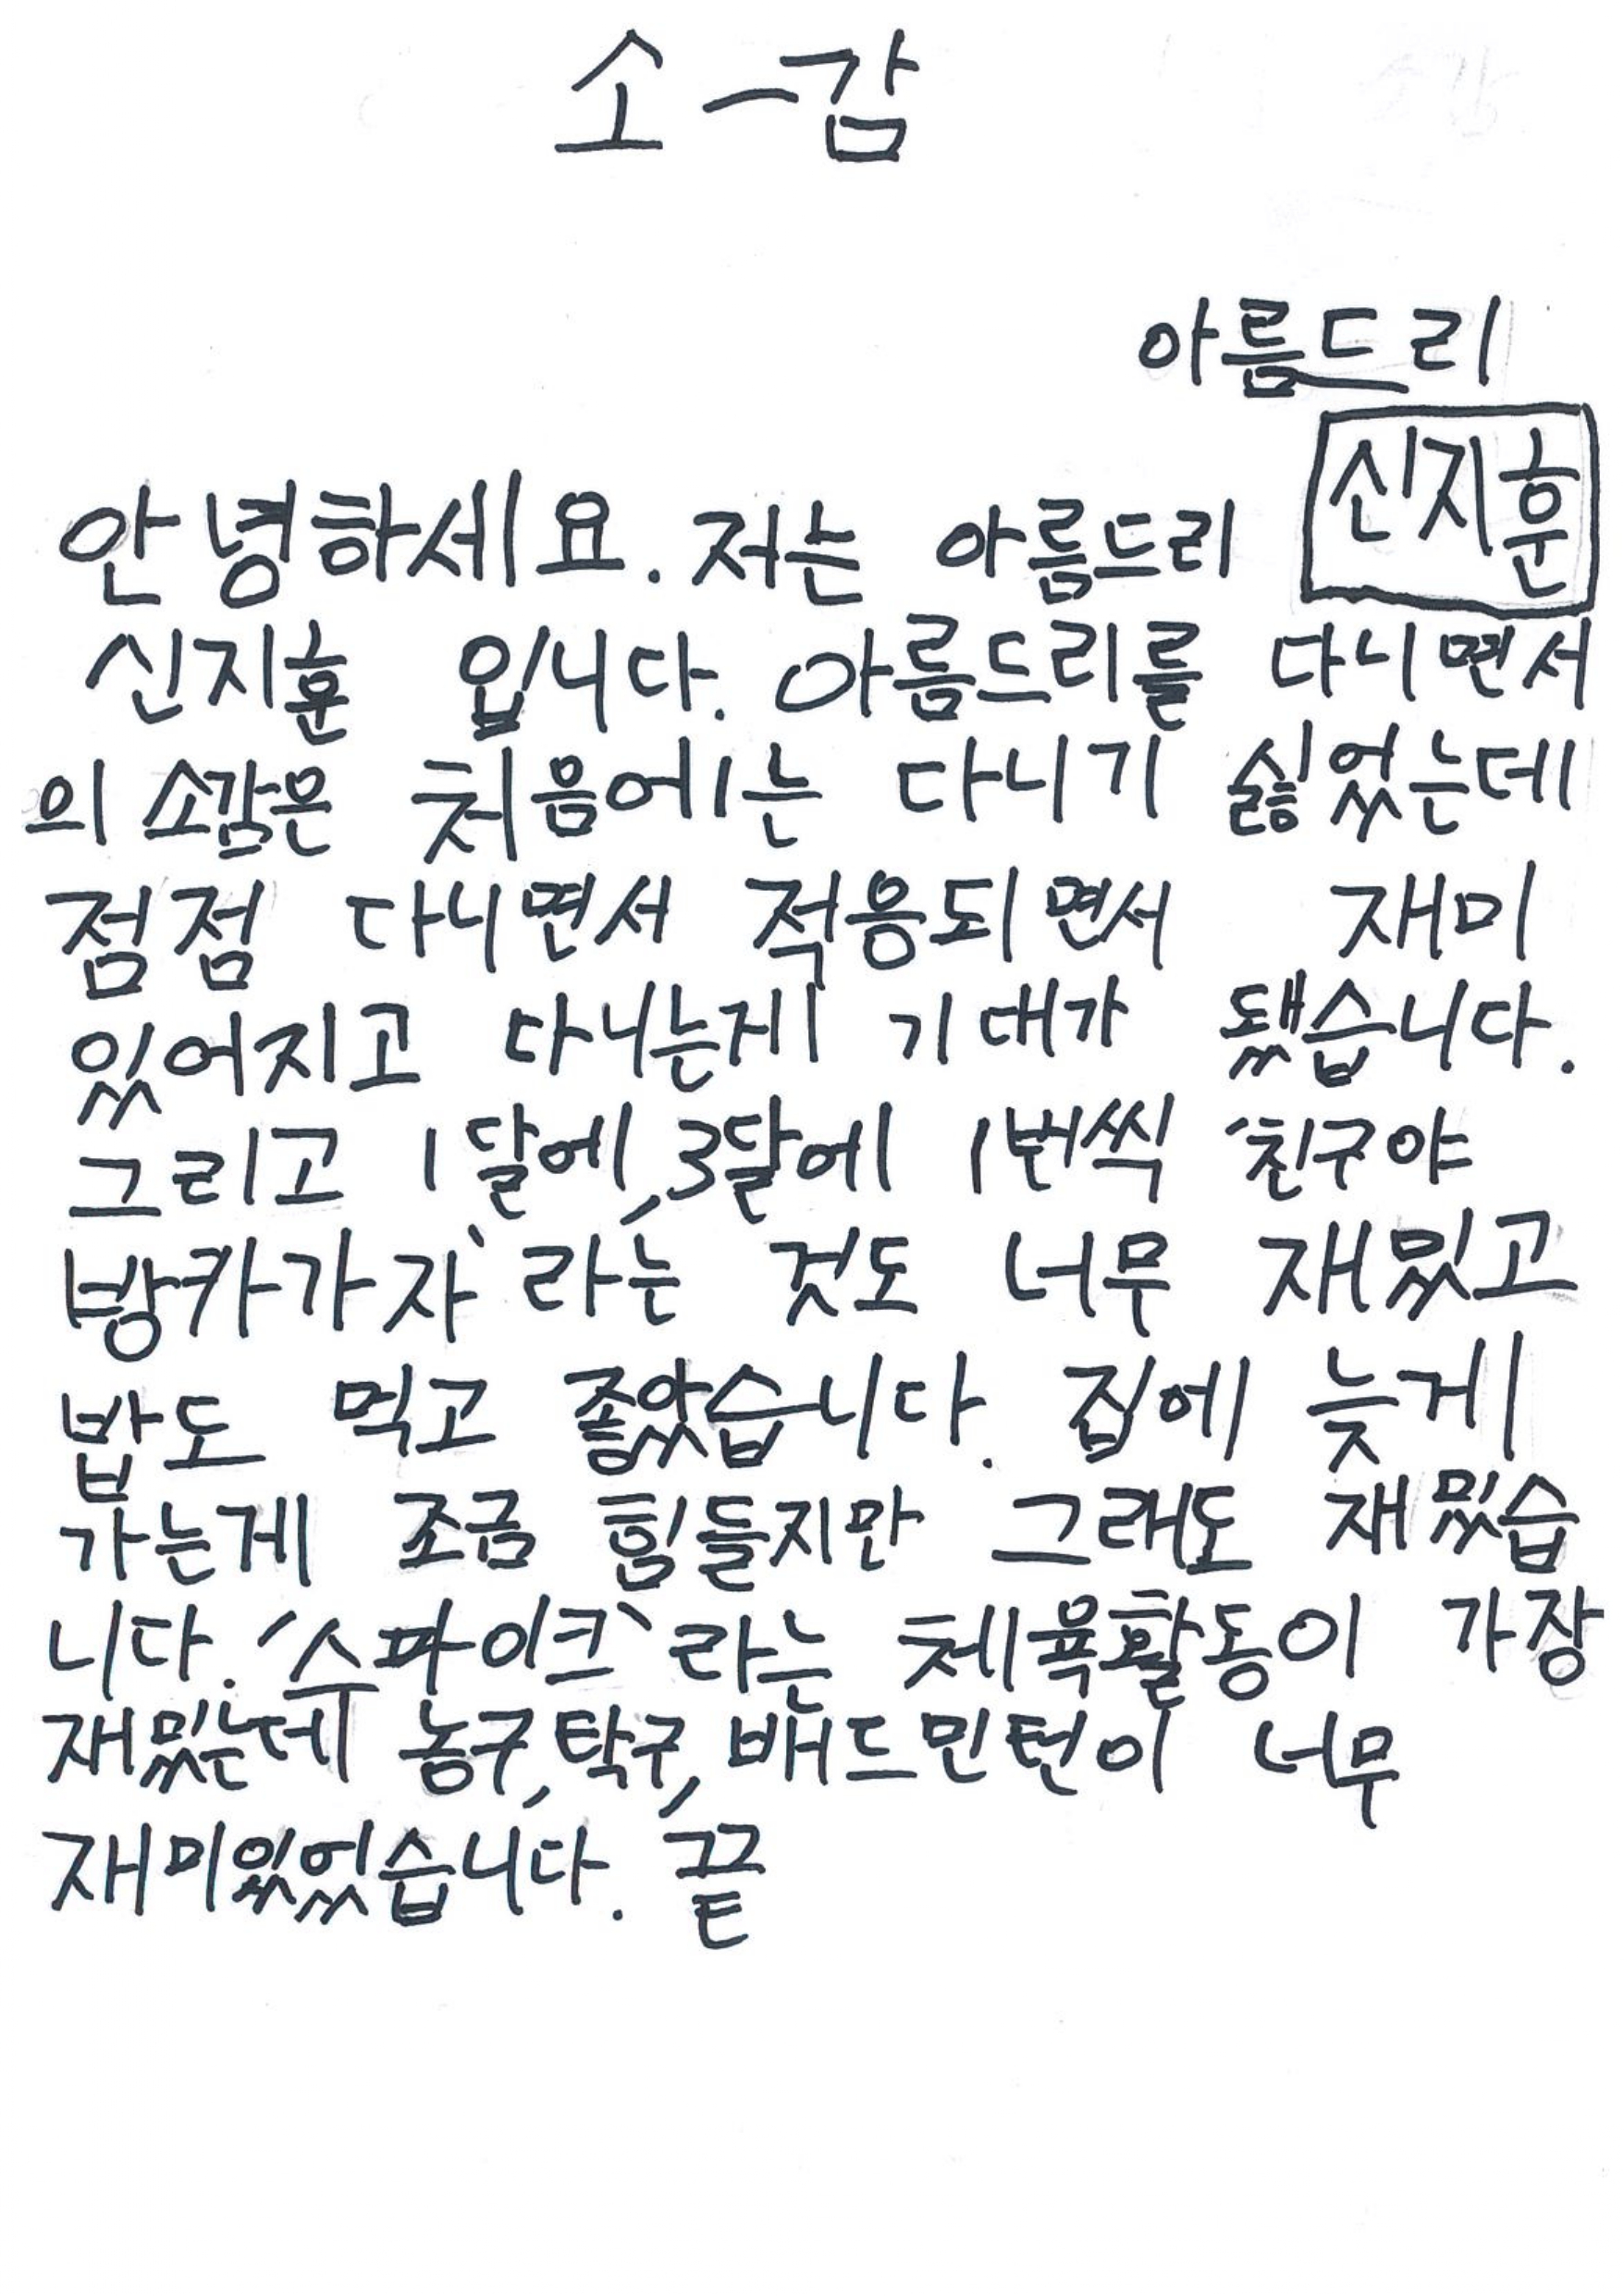 소-감
아름드리
신지훈
안녕하세요. 저는 아름드리
신지훈 입니다. 아름드리를 다니면서
의 소감은 처음에는 다니기 싫었는데
점점 다니면서 적응되면서 재미
있어지고 다니는게 기대가 됐습니다.
그리고 1달에, 3달에 1번씩 '친구야
방카가자'라는 것도 너무 재밌고
밥도 먹고 좋았습니다. 집에 늦게
가는게 조금 힘들지만 그래도 재밌습
니다. '수파이크'라는 체육활동이 가장
재밌는데 농구, 탁구, 배드민턴이 너무
재미있었습니다. 끝